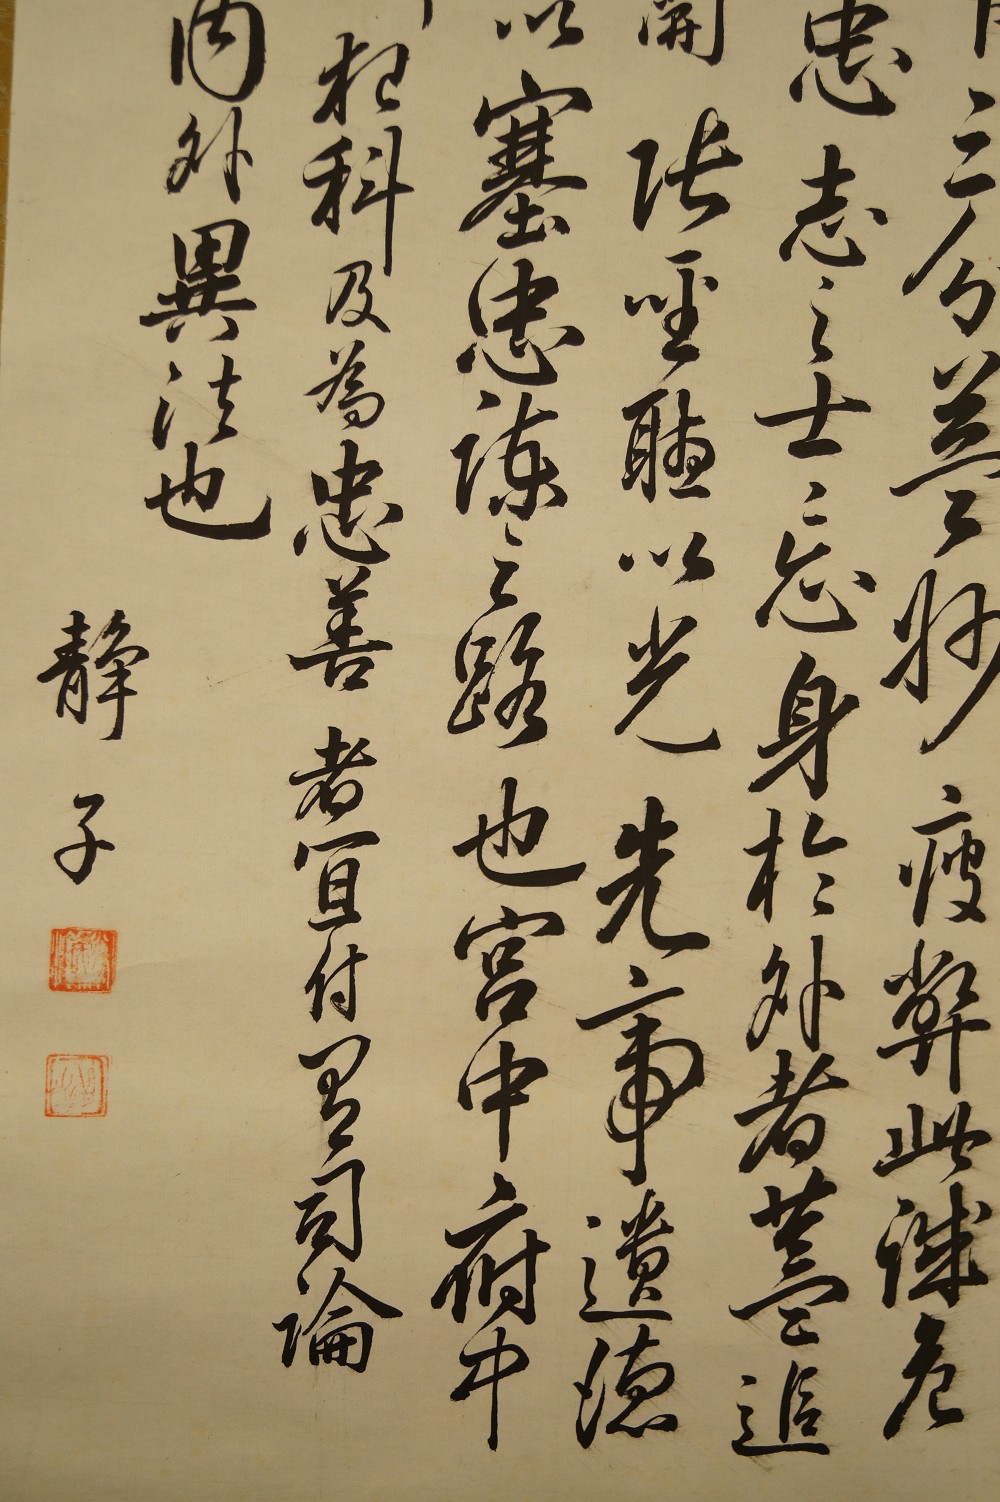 三分益州疲弊此誠危
忠志之士忘身於外者蓋追
開張聖聽以光先帝遺德
以塞忠諫之路也宮中府中
犯科及為忠善者宜付有司論
内外異法也
静子